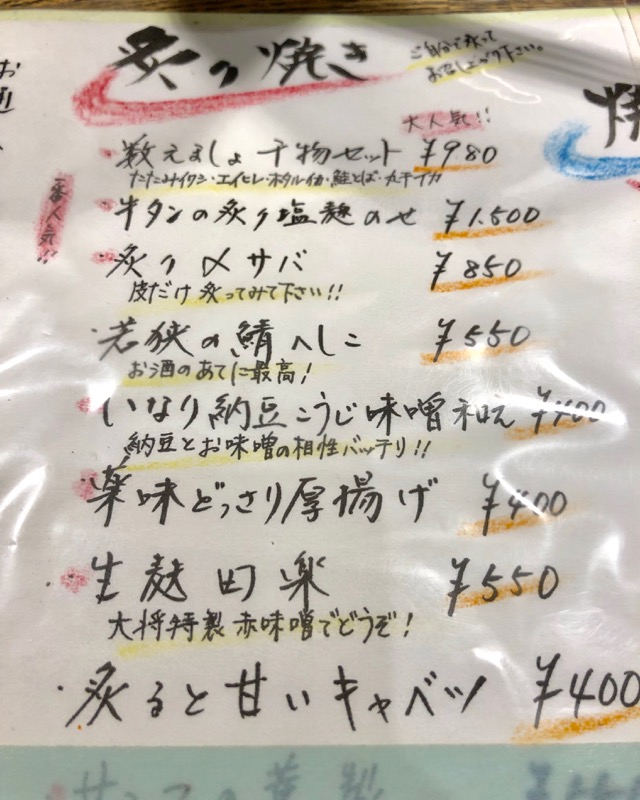 炙り焼き
ご自分で炙って
お召し上がり下さい。
大人気!!
数えましょ干物セット ¥980
たたみイワシ・エイヒレ・ホタルイカ・鮭とば・丸干フカ
一番人気!!
牛タンの炙り塩麹のせ ¥1.500
炙り〆サバ ¥850
皮だけ炙ってみて下さい!!
若狭の鯖へしこ ¥550
お酒のあてに最高!
いなり納豆こうじ味噌和え ¥400
納豆とお味噌の相性バッテリ!!
薬味どっさり厚揚げ ¥400
生麩田楽 ¥550
大将特製赤味噌でどうぞ!
炙ると甘いキャベツ ¥400